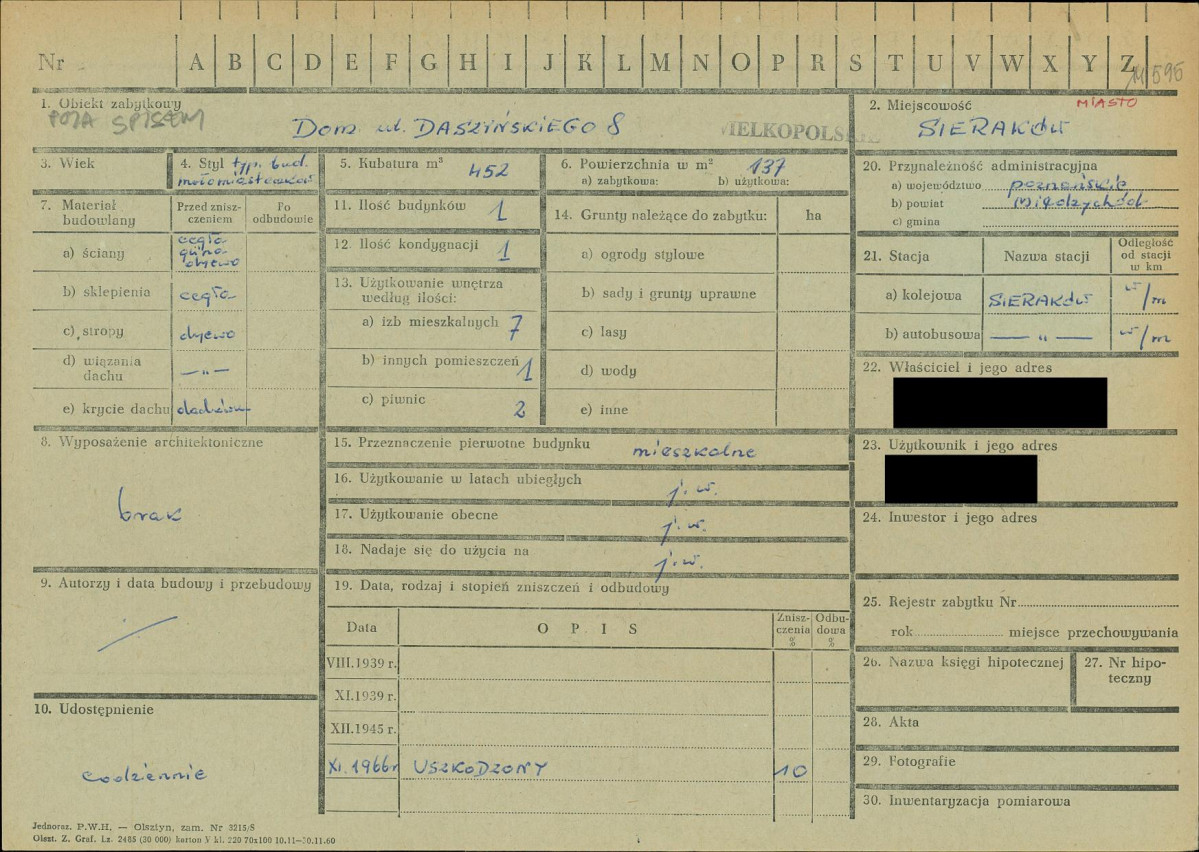 Nr A B C D E F G H I J K L M N O P R S T U V W X Y Z M 595
1. Obiekt zabytkowy
POZA SPISEM
Dom ul. DASZYŃSKIEGO 8
WIELKOPOLSKIE
2. Miejscowość MIASTO
SIERAKÓW
3. Wiek
4. Styl typ. bud.
małomiasteczkow
5. Kubatura m³ 452
6. Powierzchnia w m² 137
a) zabytkowa: b) użytkowa:
7. Materiał budowlany
Przed zniszczeniem
Po odbudowie
a) ściany cegła glina drzewo
b) sklepienia cegła
c) stropy drzewo
d) wiązania dachu —„—
e) krycie dachu dachówka
8. Wyposażenie architektoniczne
brak
9. Autorzy i data budowy i przebudowy
10. Udostępnienie
codziennie
11. Ilość budynków 1
12. Ilość kondygnacji 1
13. Użytkowanie wnętrza według ilości:
a) izb mieszkalnych 7
b) innych pomieszczeń 1
c) piwnic 2
14. Grunty należące do zabytku: ha
a) ogrody stylowe
b) sady i grunty uprawne
c) lasy
d) wody
e) inne
15. Przeznaczenie pierwotne budynku mieszkalne
16. Użytkowanie w latach ubiegłych j. w.
17. Użytkowanie obecne j. w.
18. Nadaje się do użycia na j. w.
19. Data, rodzaj i stopień zniszczeń i odbudowy
Data OPIS Zniszczenia % Odbudowa %
VIII.1939 r.
XI.1939 r.
XII.1945 r.
XI.1966r USZKODZONY 10
20. Przynależność administracyjna
a) województwo poznańskie
b) powiat Międzychód
c) gmina
21. Stacja Nazwa stacji Odległość od stacji w km
a) kolejowa SIERAKÓW w/m
b) autobusowa —„— w/m
22. Właściciel i jego adres
23. Użytkownik i jego adres
24. Inwestor i jego adres
25. Rejestr zabytku Nr
rok miejsce przechowywania
26. Nazwa księgi hipotecznej
27. Nr hipoteczny
28. Akta
29. Fotografie
30. Inwentaryzacja pomiarowa
Jednoraz. P.W.H. — Olsztyn, zam. Nr 3215/S
Olszt. Z. Graf. Lz. 2465 (30 000) karton V kl. 220 70x100 10.11—30.11.60